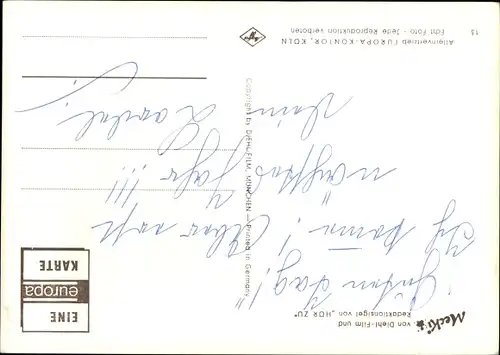 Mecki
von Diehl-Film und
Redaktionsigel von „HÖR ZU“
EINE
europa
KARTE
"Guten Tag!"
Ich
! Aber erst
nächstes Jahr !!!
Dein
Copyright by DIEHL-FILM, MÜNCHEN — Printed in Germany
Alleinvertrieb EUROPA-KONTOR, KÖLN
Echt Foto - Jede Reproduktion verboten